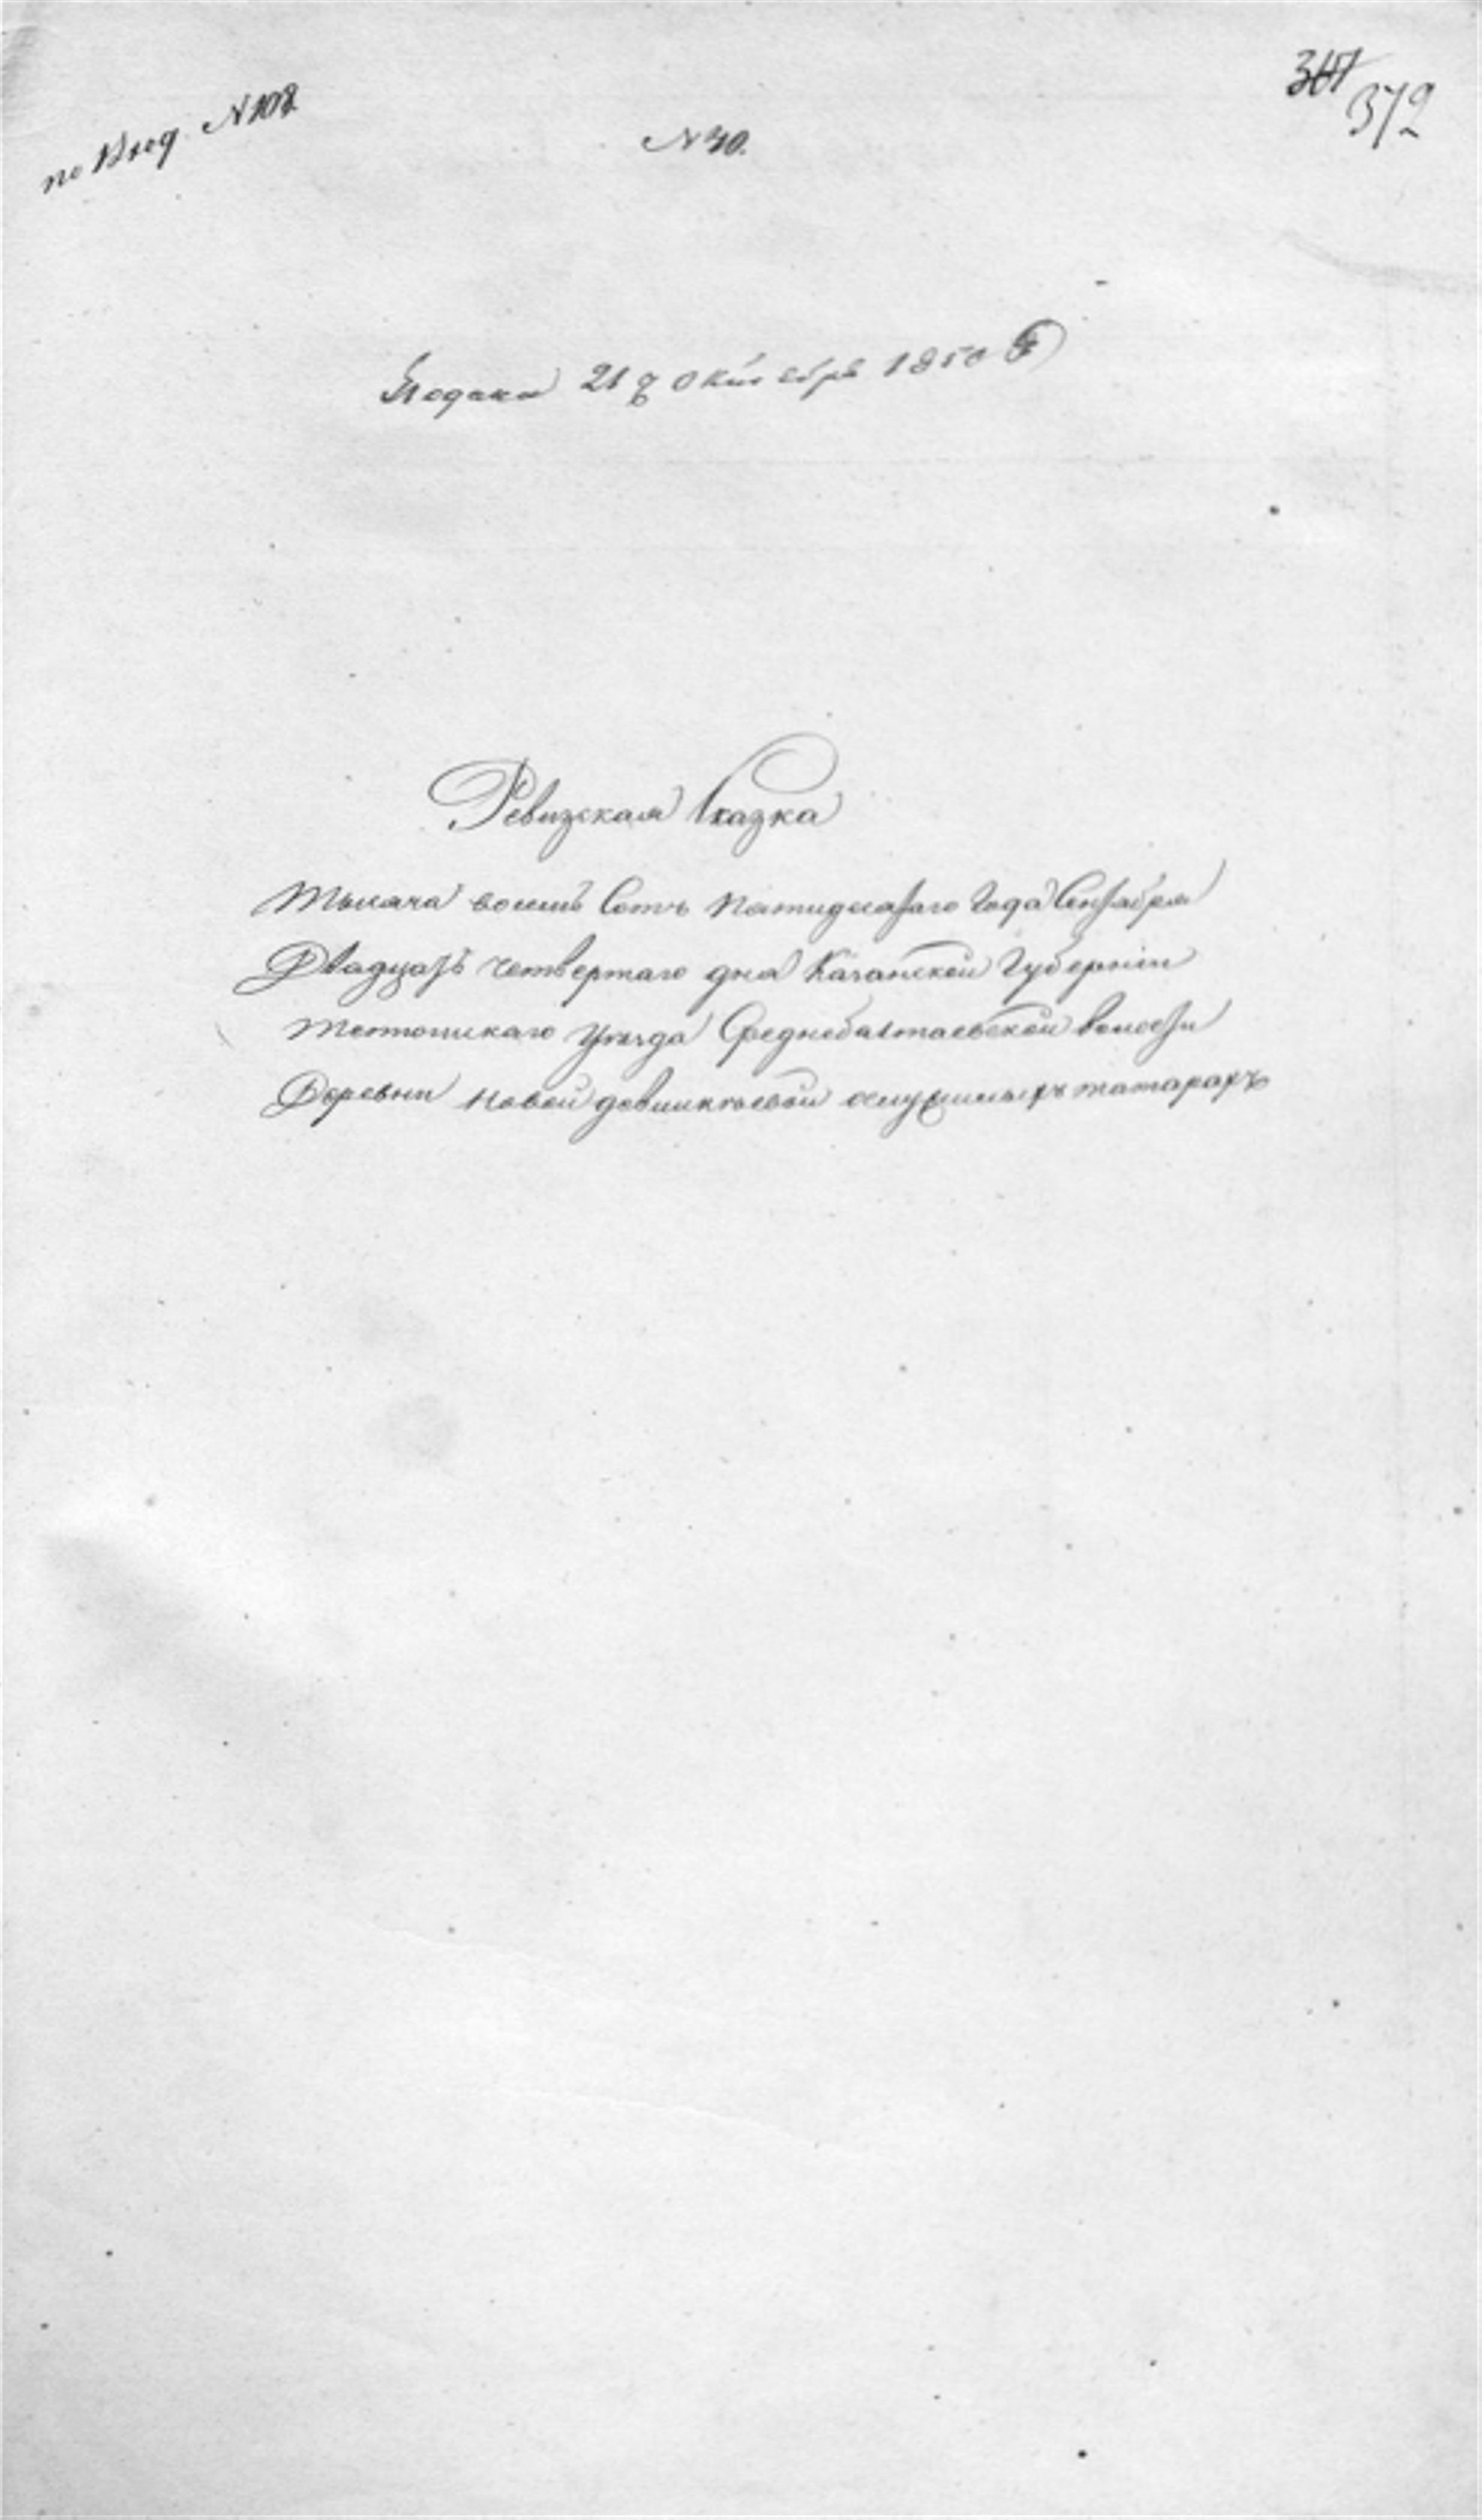 по Вход. N 108
N 40.
372
Подана 21 октября 1850
Ревизская Сказка
Тысяча восемь Сотъ пятидесятаго Года Сентября
Двадцать четвертаго дня Казанской Губерніи
Тетюшскаго Уѣзда Среднебалтаевской волости
Деревни Новой
служилыхъ татарахъ